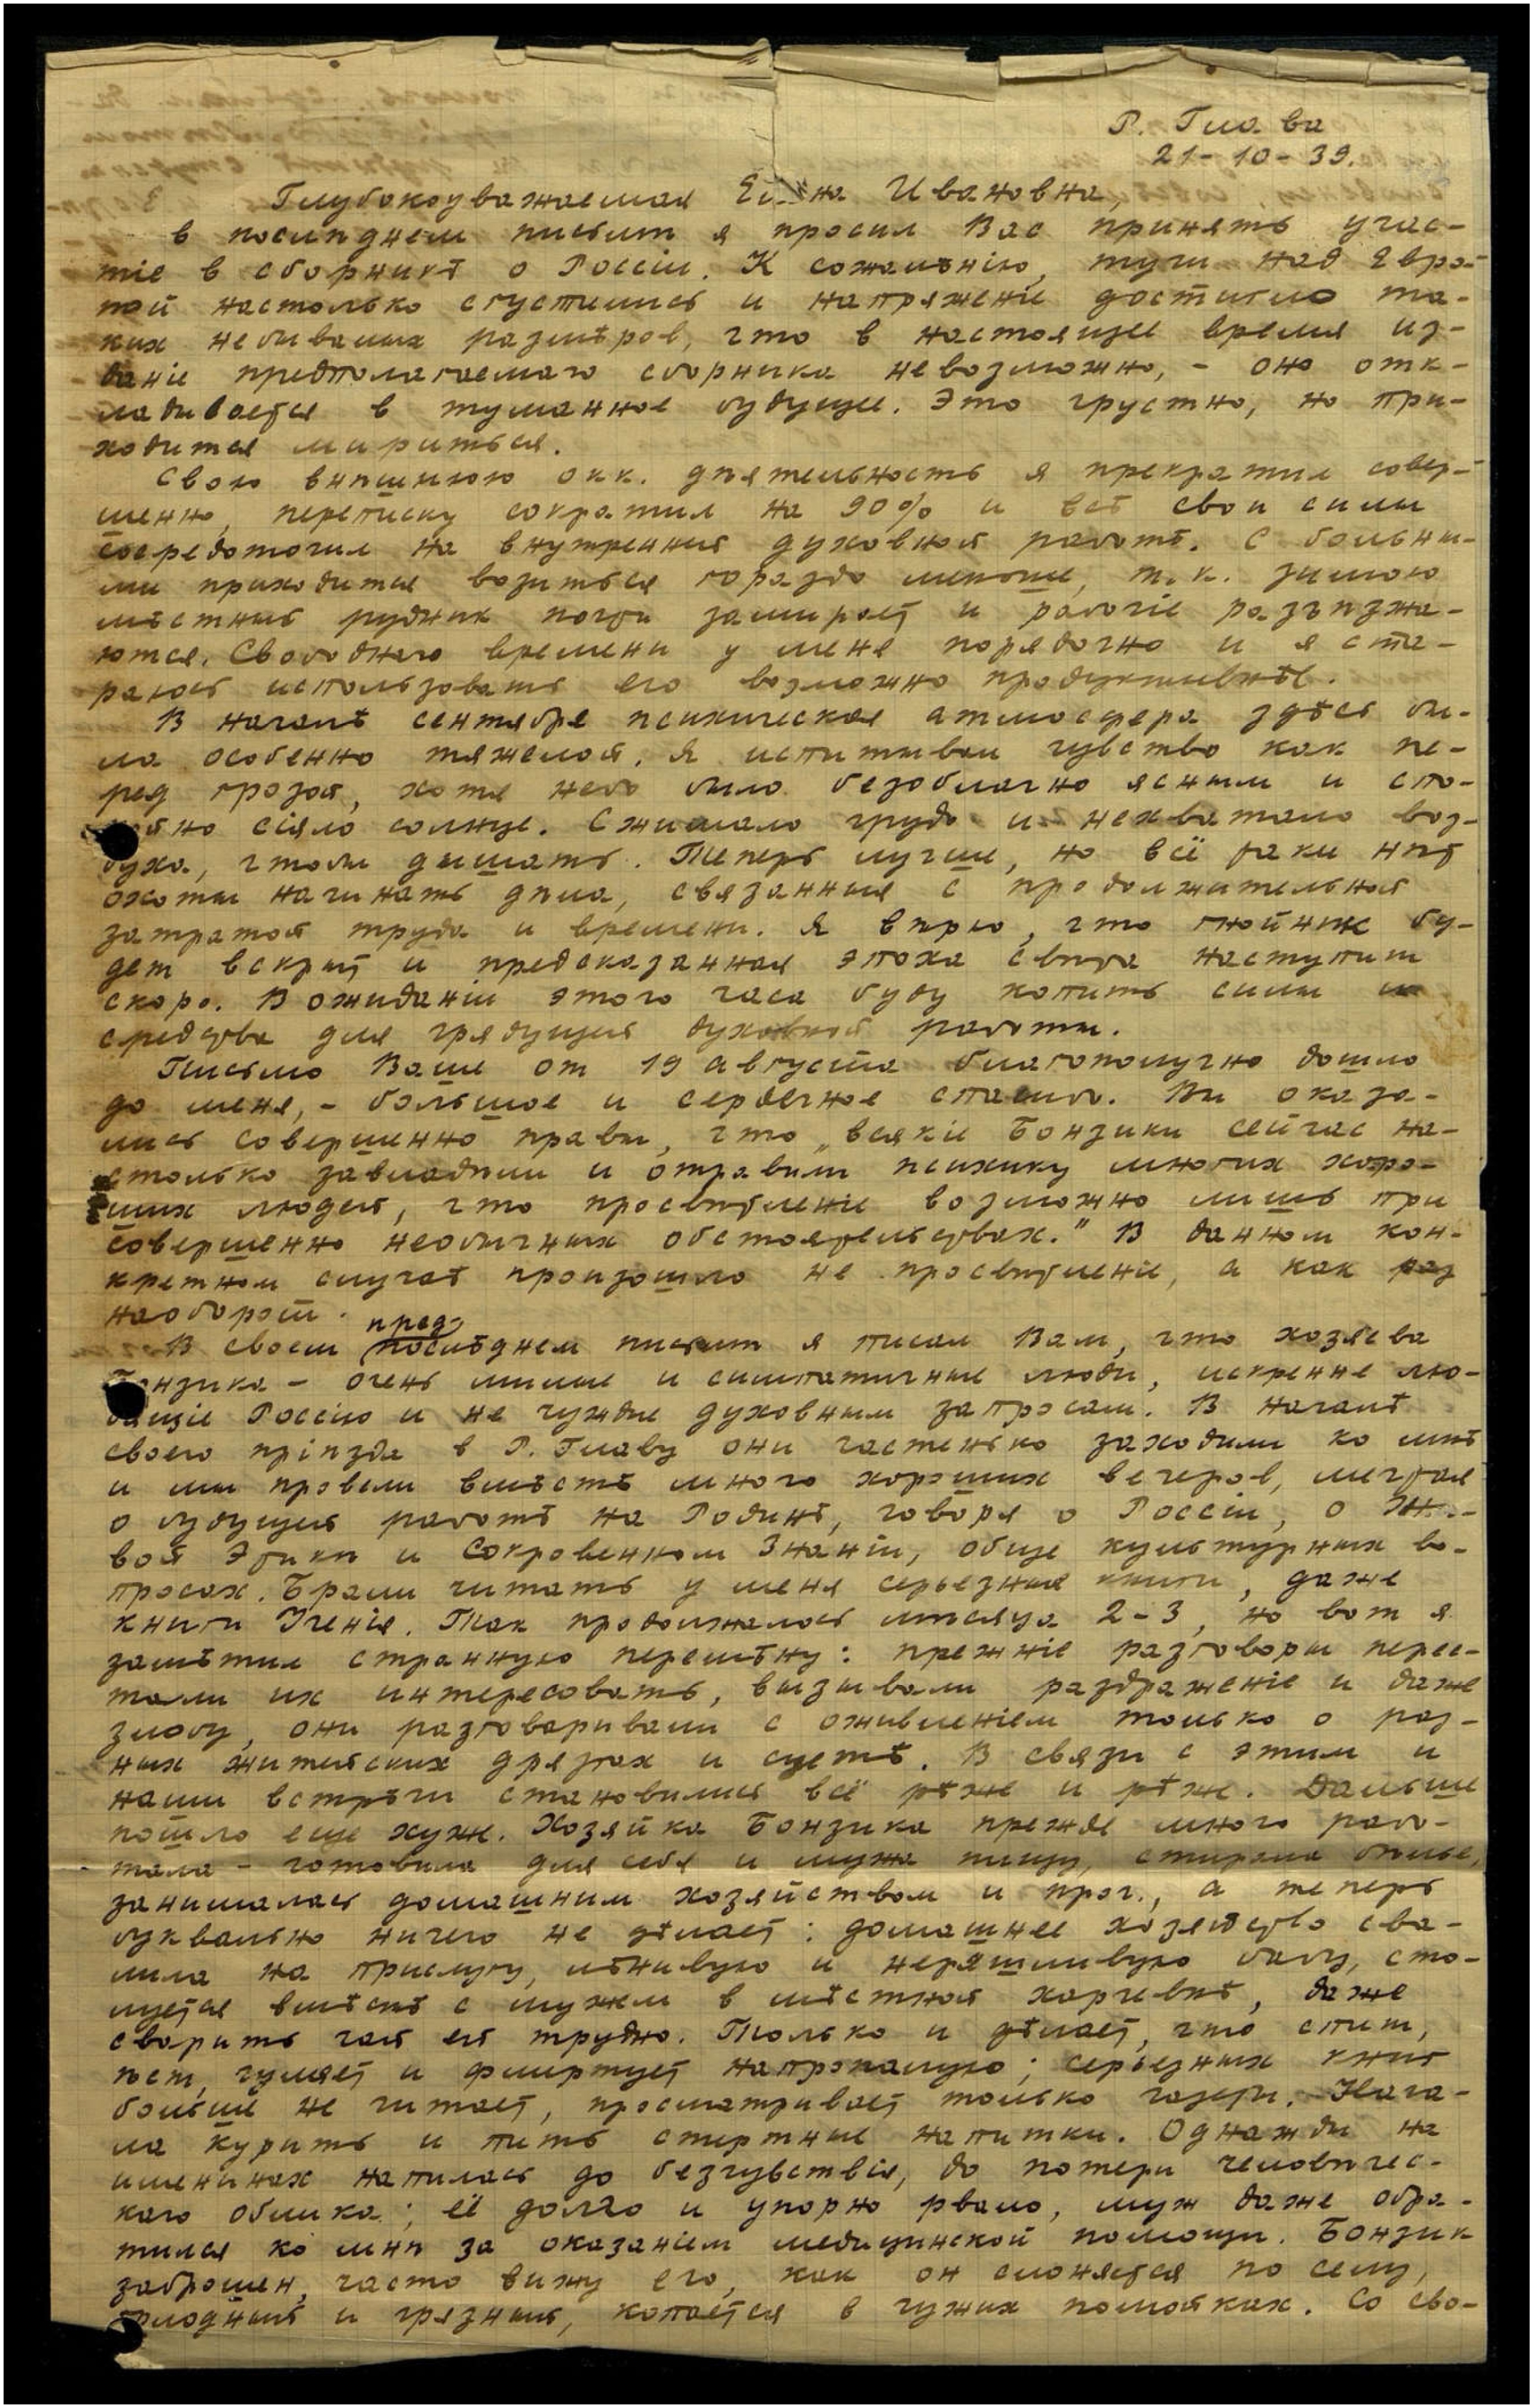 Р. Глава
21-10-39.
Глубокоуважаемая Елена Ивановна,
в последнем письме я просил Вас принять учас-
тіе в сборникѣ о Россіи. К сожалѣнію, тучи над Евро-
пой настолько сгустились и напряженіе достигло та-
ких небывалых размѣров, что в настоящее время из-
даніе предполагаемаго сборника невозможно, - оно отк-
ладывается в туманное будущее. Это грустно, но при-
ходится мириться.
Свою внѣшнюю окк. дѣятельность я прекратил совер-
шенно, переписку сократил на 90% и всѣ свои силы
сосредоточил на внутренней духовной работѣ. С больны-
ми приходится возиться гораздо меньше, т.к. зимою
мѣстный рудник почти замирает и рабочіе разъѣзжа-
ются. Свободнаго времени у меня порядочно и я ста-
раюсь использовать его возможно продуктивнѣе.
В началѣ сентября психическая атмосфера здѣсь бы-
ла особенно тяжелой. Я испытывал чувство как пе-
ред грозой, хотя небо было безоблачно ясным и спо-
койно сіяло солнце. Сжимало грудь и нехватало воз-
духа, чтобы дышать. Теперь лучше, но всё таки нѣт
охоты начинать дѣла, связанныя с продолжительной
затратой труда и времени. Я вѣрю, что гнойник бу-
дет вскрыт и предсказанная эпоха свѣта наступит
скоро. В ожиданіи этого часа буду копить силы и
средства для грядущей духовной работы.
Письмо Ваше от 19 августа благополучно дошло
до меня, - большое и сердечное спасибо. Вы оказа-
лись совершенно правы, что „всякіе Бонзики сейчас на-
столько завладѣли и отравили психику многих хоро-
ших людей, что просвѣтленіе возможно лишь при
совершенно необычных обстоятельствах." В данном кон-
кретном случаѣ произошло не просвѣтленіе, а как раз
наоборот.
В своем пред-послѣднем письмѣ я писал Вам, что хозяева
Бонзика - очень милые и симпатичные люди, искренне лю-
бящіе Россію и не чуждые духовным запросам. В началѣ
своего пріѣзда в Р. Главу они частенько заходили ко мнѣ
и мы провели вмѣстѣ много хороших вечеров, мечтая
о будущей работѣ на Родинѣ, говоря о Россіи, о Жи-
вой Этикѣ и Сокровенном Знаніи, обще культурных во-
просах. Брали читать у меня серьезныя книги, даже
книги Ученія. Так продолжалось мѣсяца 2-3, но вот я
замѣтил странную перемѣну: прежніе разговоры перес-
тали их интересовать, вызывали раздраженіе и даже
злобу, они разговаривали с оживленіем только о раз-
ных житейских дрязгах и суетѣ. В связи с этим и
наши встрѣчи становились всё рѣже и рѣже. Дальше
пошло еще хуже. Хозяйка Бонзика прежде много рабо-
тала - готовила для себя и мужа пищу, стирала бѣлье,
занималась домашним хозяйством и проч., а теперь
буквально ничего не дѣлает: домашнее хозяйство сва-
лила на прислугу, лѣнивую и неряшливую бабу, сто-
луется вмѣстѣ с мужем в мѣстной харчевнѣ, даже
сварить чай ей трудно. Только и дѣлает, что спит,
ѣст, гуляет и флиртует напропалую; серьезных книг
больше не читает, просматривает только газеты. Нача-
ла курить и пить спиртные напитки. Однажды на
именинах напилась до безчувствія, до потери человѣчес-
каго облика; её долго и упорно рвало, муж даже обра-
тился ко мнѣ за оказаніем медицинской помощи. Бонзик
заброшен, часто вижу его, как он слоняется по селу,
голодный и грязный, копается в чужих помойках. Со сво-